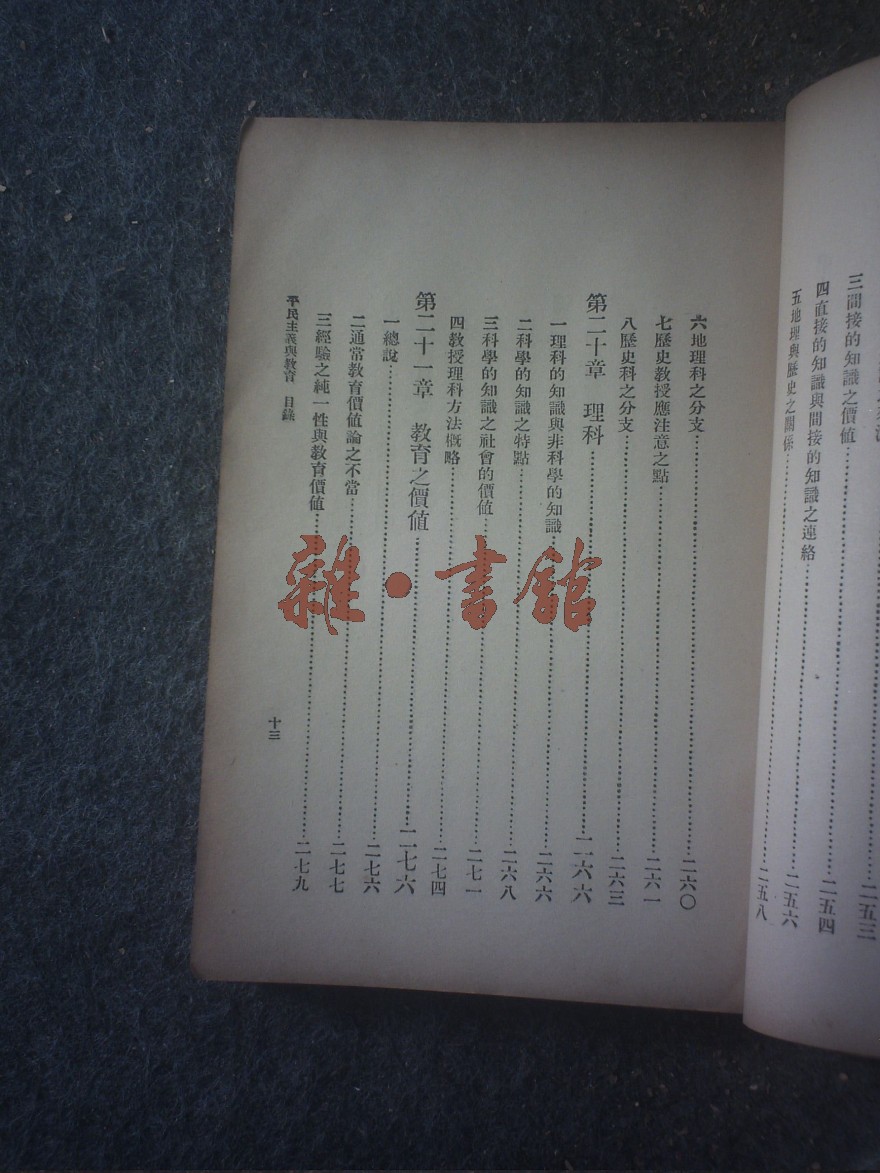 三間接的知識之價値……二五三
四直接的知識與間接的知識之連絡……二五四
五地理與歷史之關係……二五六
六地理科之分支……二六〇
七歷史教授應注意之點……二六一
八歷史科之分支……二六三
第二十章 理科……二六六
一理科的知識與非科學的知識……二六六
二科學的知識之特點……二六八
三科學的知識之社會的價値……二七一
四教授理科方法概略……二七四
第二十一章 教育之價値……二七六
一總說……二七六
二通常教育價値論之不當……二七七
三經驗之純一性與教育價値……二七九
平民主義與教育 目錄
十三
雜·書館